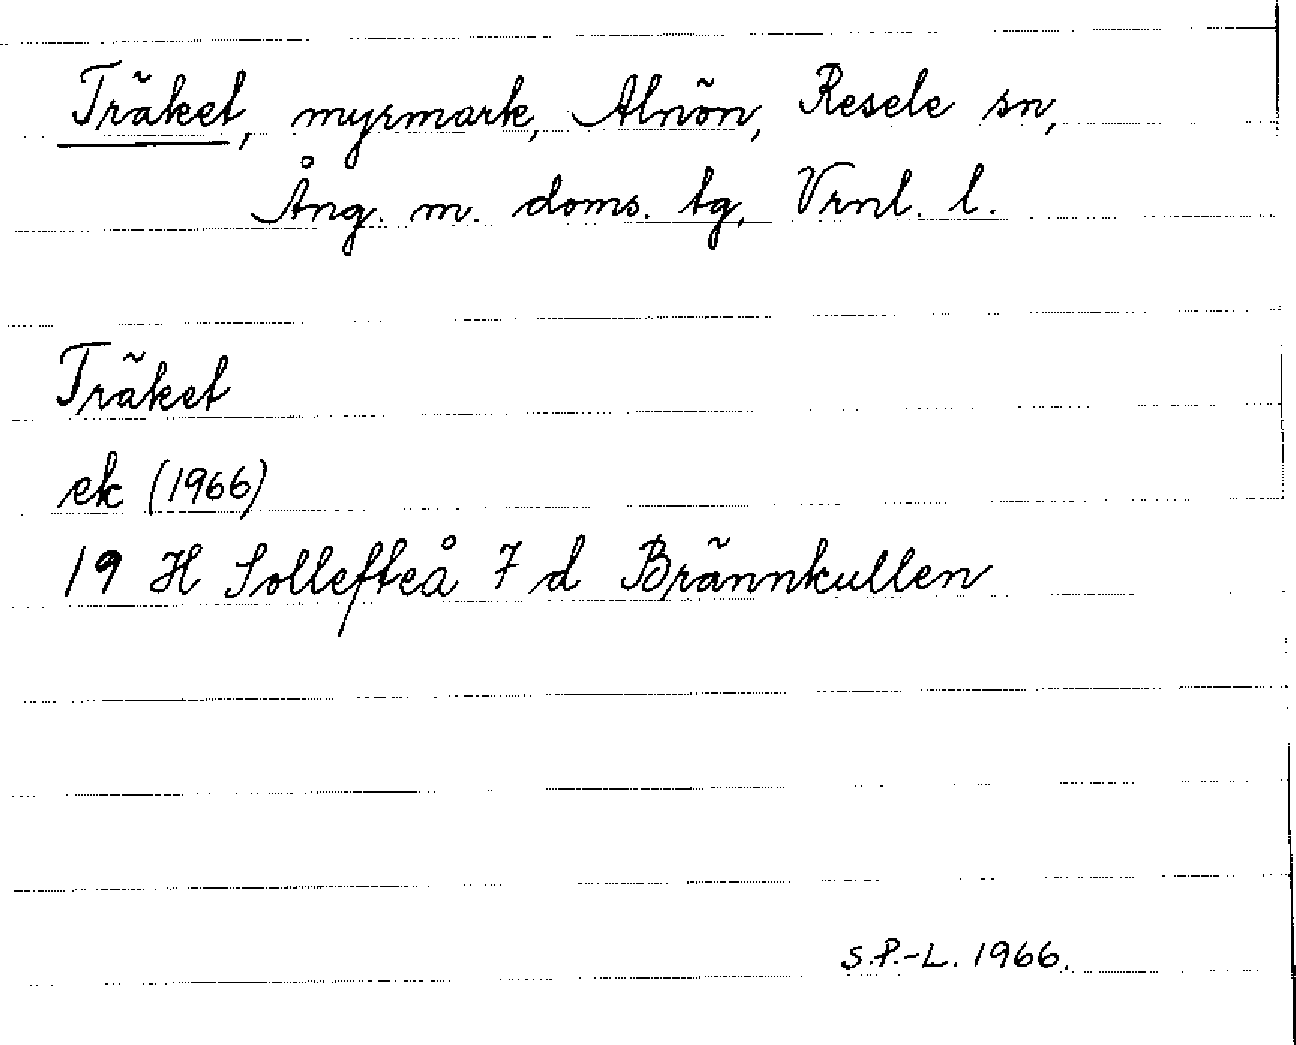 Träket, myrmark, Alnön, Resele sn,
Ång. m. doms. tg, Vrnl. l.
Träket
ek (1966)
19 H Sollefteå 7 d Brännkullen
S.P.-L. 1966.